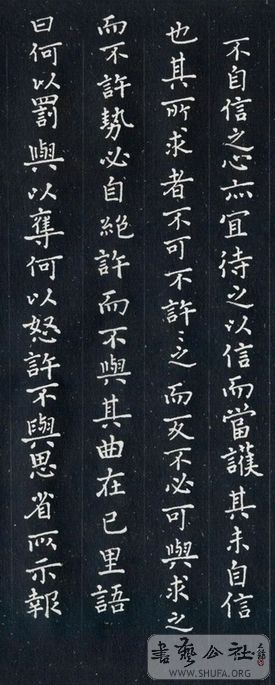 不自信之心亦宜待之以信而當護其未自信
也其所求者不可不許〻之而反不必可與求之
而不許勢必自絕許而不與其曲在己里語
曰何以罰與以奪何以怒許不與思省所示報
書藝公社
WWW.SHUFA.ORG